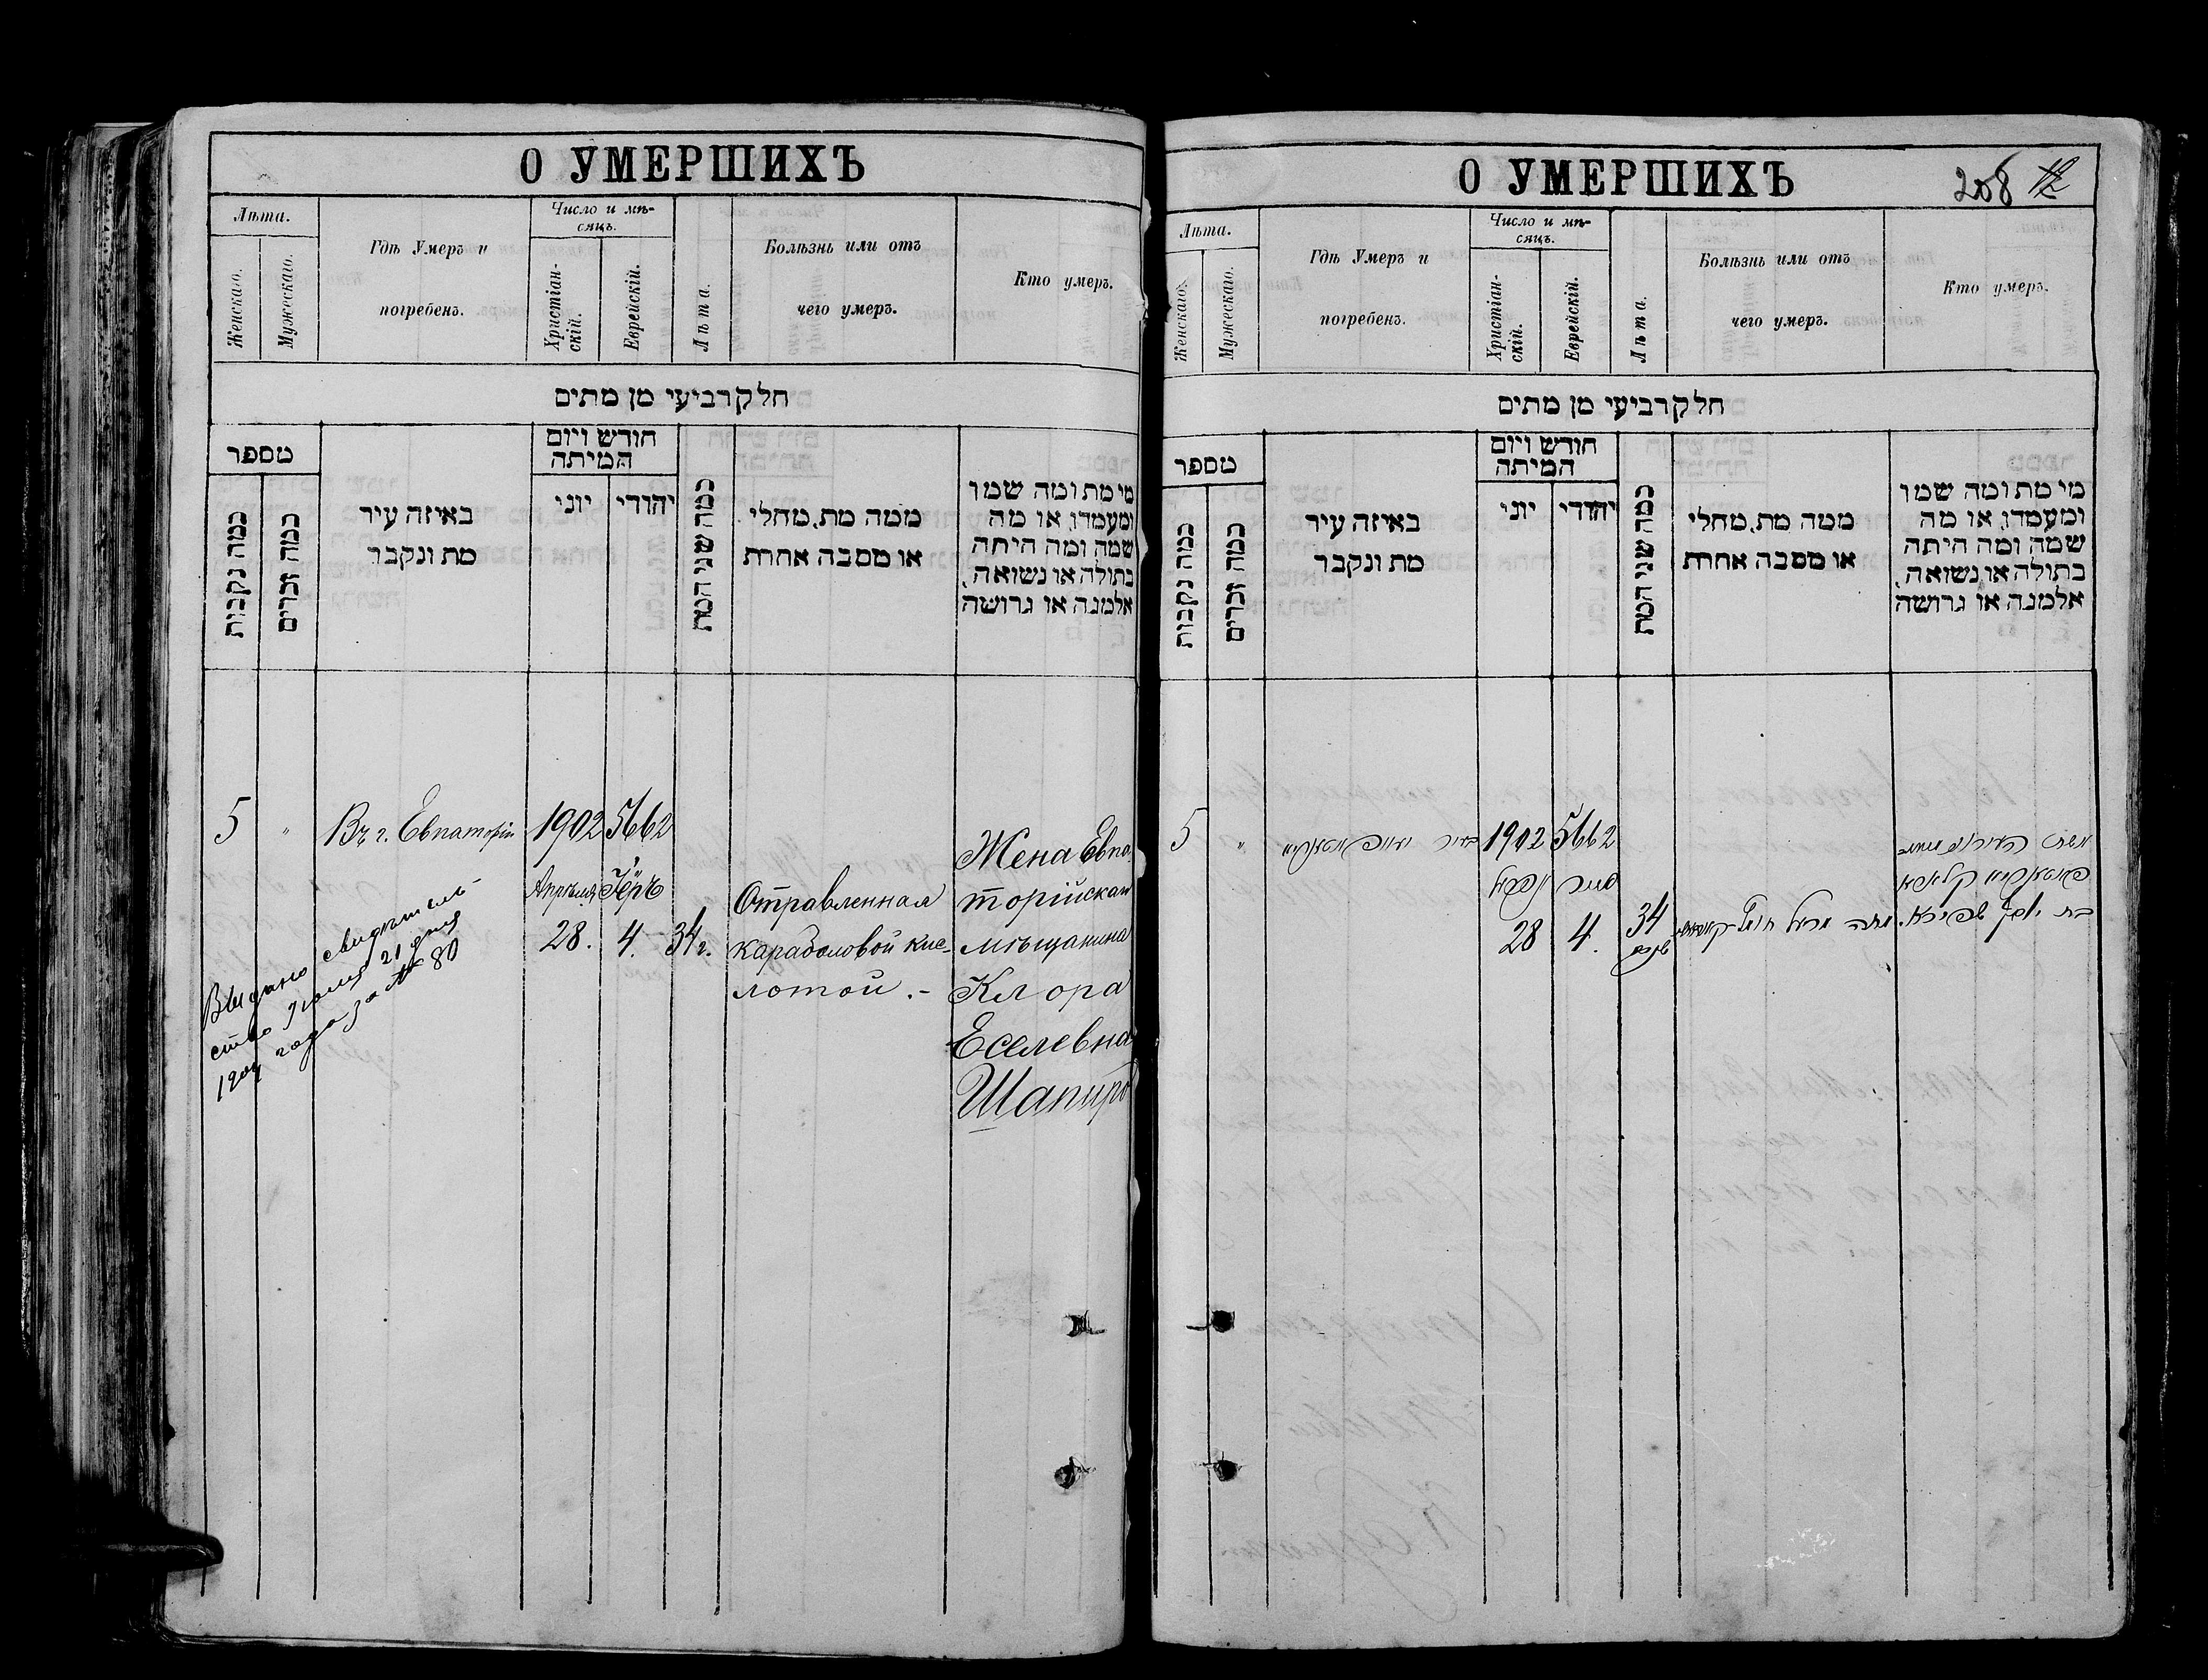 О УМЕРШИХЪ
Лѣта.
Женскаго.
Мужескаго.
Гдѣ Умеръ и
погребенъ.
Число и мѣ-
сяцъ.
Христіан-
скій.
Еврейскій.
Лѣта.
Болѣзнь или отъ
чего умеръ.
Кто умеръ.
חלק רביעי מן מתים
מספר
כמה נקבות
כמה זכרים
באיזה עיר
מת ונקבר
חודש ויום
המיתה
יוני
יהודי
כמה שני המת
ממה מת, מחלי
או מסבה אחרת
מי מת ומה שמו
ומעמדו, או מה
שמה ומה היתה
בתולה או נשואה,
אלמנה או גרושה
5
"
Въ г. Евпаторіи
1902
Апрѣля
28.
5662
Іеръ
4.
34 г.
Отравленная
караболовой кис-
лотой.-
Жена Евпа-
торійскаго
мѣщанина
Клора
Еселевна
Шапиро
Выдано свидѣтель-
ство Іюля 21 дня
1904 года за № 80
О УМЕРШИХЪ
208 12
Лѣта.
Женскаго.
Мужескаго.
Гдѣ Умеръ и
погребенъ.
Число и мѣ-
сяцъ.
Христіан-
скій.
Еврейскій.
Лѣта.
Болѣзнь или отъ
чего умеръ.
Кто умеръ.
חלק רביעי מן מתים
מספר
כמה נקבות
כמה זכרים
באיזה עיר
מת ונקבר
חודש ויום
המיתה
יוני
יהודי
כמה שני המת
ממה מת, מחלי
או מסבה אחרת
מי מת ומה שמו
ומעמדו, או מה
שמה ומה היתה
בתולה או נשואה,
אלמנה או גרושה
5
"
בעיר
1902
אפריל
28
5662
אייר
4.
34
שנים
מתה
אשת
בת יוסף שפירא.